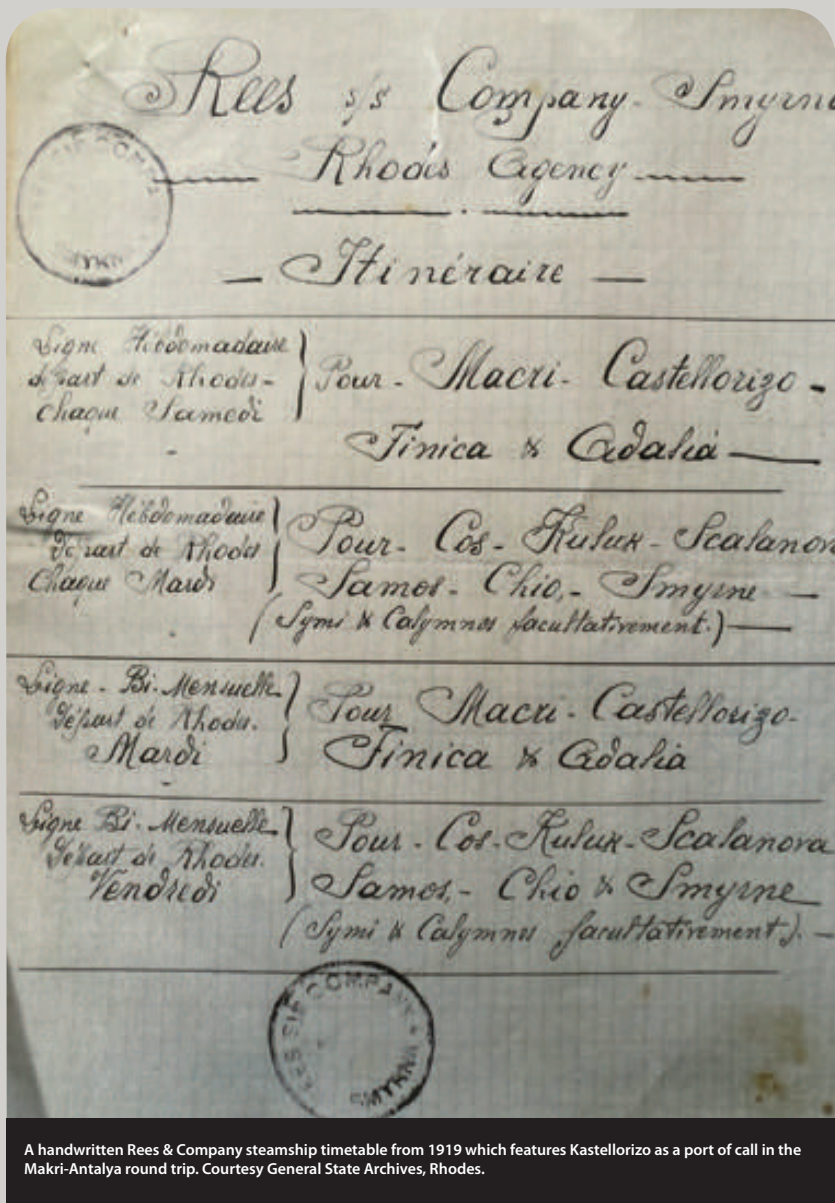 Rees s/s Company - Smyrne
Rhodes Agency
— Itinéraire —
Ligne Hébdomadaire
départ de Rhodes -
chaque Samedi
Pour - Macri - Castellorizo -
Finica & Adalia —
Ligne Hébdomadaire
Départ de Rhodes
Chaque Mardi
Pour - Cos - Kuluk - Scalanova
Samos - Chio - Smyrne —
(Symi & Calymnos facultativement.) —
Ligne - Bi-Mensuelle
Départ de Rhodes.
Mardi
Pour Macri - Castellorizo -
Finica & Adalia
Ligne Bi-Mensuelle
Départ de Rhodes.
Vendredi
Pour - Cos - Kuluk - Scalanova
Samos - Chio & Smyrne
(Symi & Calymnos facultativement.) —
REES S/S COMPANY
SMYRNA
A handwritten Rees & Company steamship timetable from 1919 which features Kastellorizo as a port of call in the
Makri-Antalya round trip. Courtesy General State Archives, Rhodes.